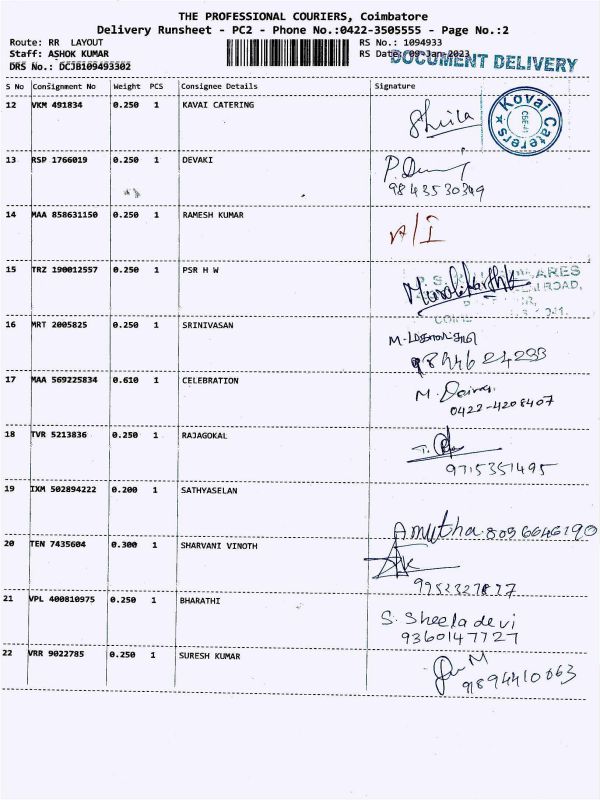 THE PROFESSIONAL COURIERS, Coimbatore
Delivery Runsheet - PC2 - Phone No.:0422-3505555 - Page No.:2
Route: RR LAYOUT
RS No.: 1094933
Staff: ASHOK KUMAR
RS Date: 09-Jan-2023
DOCUMENT DELIVERY
DRS No.: DCJB109493302
S No Consignment No Weight PCS Consignee Details Signature
12 VKM 491834 0.250 1 KAVAI CATERING
Shiila
Kovai Caterers
13 RSP 1766019 0.250 1 DEVAKI
9843530349
14 MAA 858631150 0.250 1 RAMESH KUMAR
A/I
15 TRZ 190012557 0.250 1 PSR H W
ROAD,
16 MRT 2005825 0.250 1 SRINIVASAN
17 MAA 569225834 0.610 1 CELEBRATION
0422-4208407
18 TVR 5213836 0.250 1 RAJAGOKAL
9715351495
19 IXM 502894222 0.200 1 SATHYASELAN
Amutha. 8056646190
20 TEN 7435604 0.300 1 SHARVANI VINOTH
9952327877
21 VPL 400810975 0.250 1 BHARATHI
S. Sheela devi
9360147727
22 VRR 9022785 0.250 1 SURESH KUMAR
9894410663